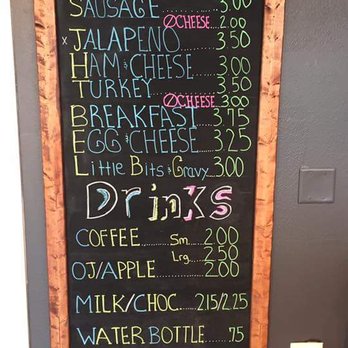 SAUSAGE 3.00
ØCHEESE 2.00
x JALAPENO 3.50
HAM & CHEESE 3.00
TURKEY 3.50
ØCHEESE 3.00
BREAKFAST 3.75
EGG & CHEESE 3.25
Little Bits & Gravy 3.00
Drinks
COFFEE Sm 2.00
Lrg 2.50
OJ/APPLE 2.00
MILK/CHOC. 2.15/2.25
WATER BOTTLE .75